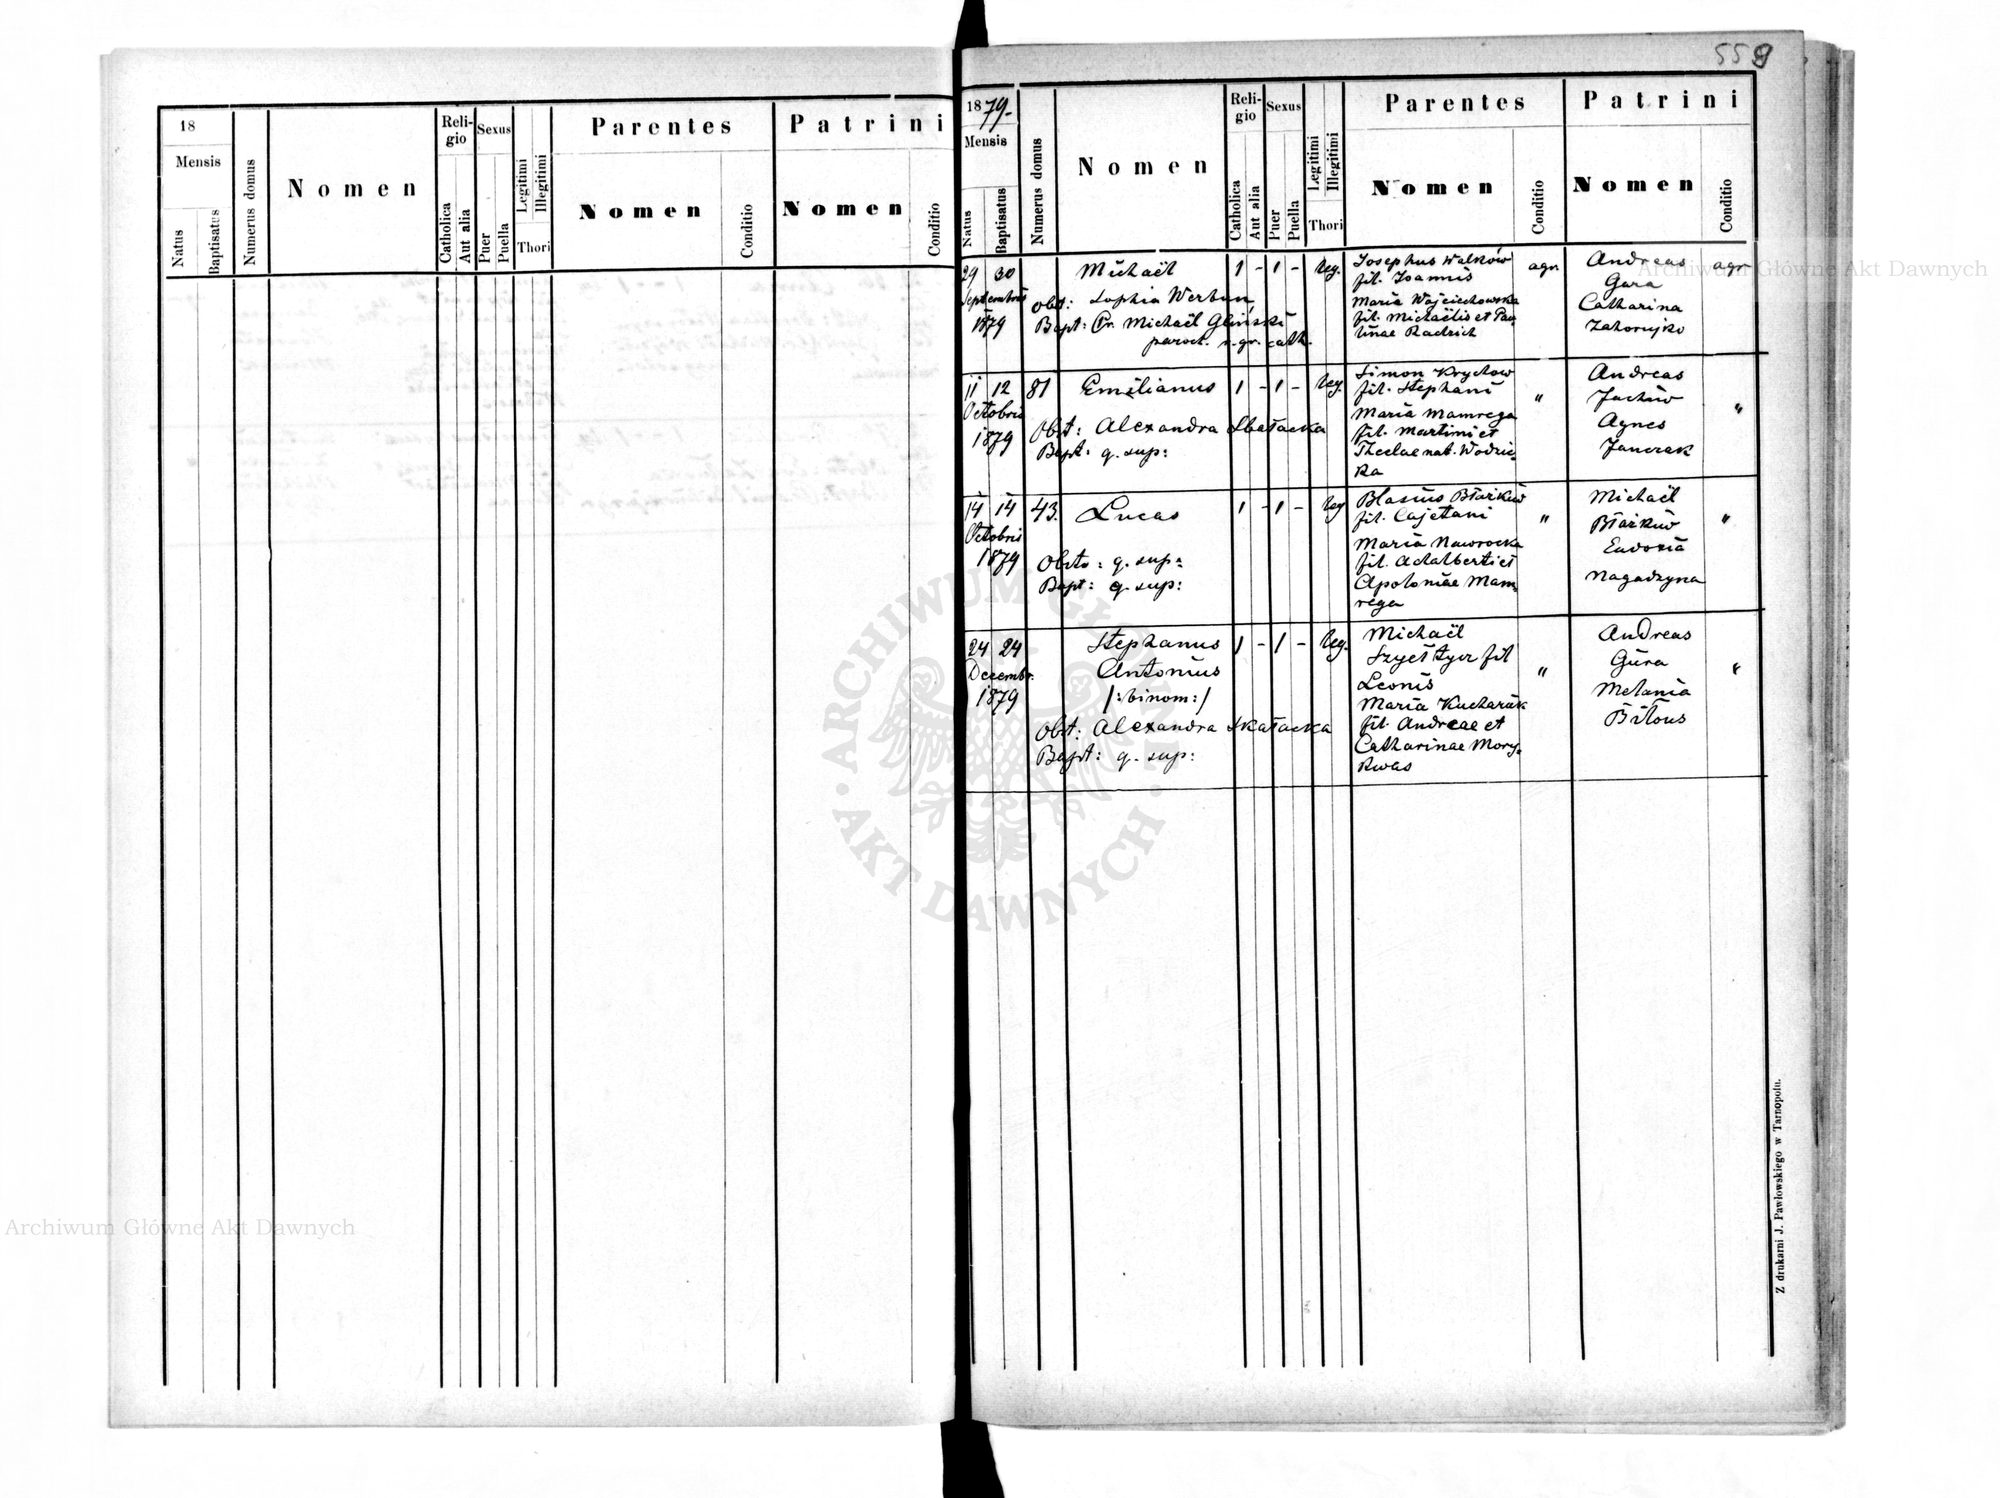 559
18
Mensis
Natus
Baptisatus
Numerus domus
Nomen
Religio
Catholica
Aut alia
Sexus
Puer
Puella
Legitimi
Illegitimi
Thori
Parentes
Nomen
Conditio
Patrini
Nomen
Conditio
1879
Mensis
Natus
Baptisatus
Numerus domus
Nomen
Religio
Catholica
Aut alia
Sexus
Puer
Puella
Legitimi
Illegitimi
Thori
Parentes
Nomen
Conditio
Patrini
Nomen
Conditio
29 30
Septembris
1879
Michaël
Obst: Sophia Werbun
Bapt: Pr. Michaël Gliński
paroch. r. gr. cath.
1 - 1 - leg.
Josephus Walków
fil. Joannis
Maria Wojciechowska
fil. Michaëlis et Pau
linae Radzich
agr.
Andreas
Gura
Catharina
Zahorujko
agr
11 12
Octobris
1879
81
Emilianus
Obst: Alexandra Skałacka
Bapt: q. sup:
1 - 1 - leg.
Simon Krychow
fil. Stephani
Maria Mamrega
fil. Martini et
Theclae nat. Wodzic
ka
"
Andreas
Jachiw
Agnes
Janczak
"
14 14
Octobris
1879
43.
Lucas
Obstv: q. sup:
Bapt: q. sup:
1 - 1 - leg
Blasius Błażkiw
fil. Cajetani
Maria Nawrocka
fil. Adalberti et
Apoloniae Mam
rega
"
Michaël
Błażkiw
Eudoxia
Nagadzyna
"
24 24
Decembr.
1879
Stephanus
Antonius
/:binom:/
Obst: Alexandra Skałacka
Bapt: q. sup:
1 - 1 - leg.
Michaël
fil
Leonis
Maria Kucharak
fil. Andreae et
Catharinae Mory
kwas
"
Andreas
Gura
Melania
Biłous
"
Z drukarni J. Pawłowskiego w Tarnopolu.
Archiwum Główne Akt Dawnych
Archiwum Główne Akt Dawnych
ARCHIWUM GŁÓWNE
AKT DAWNYCH